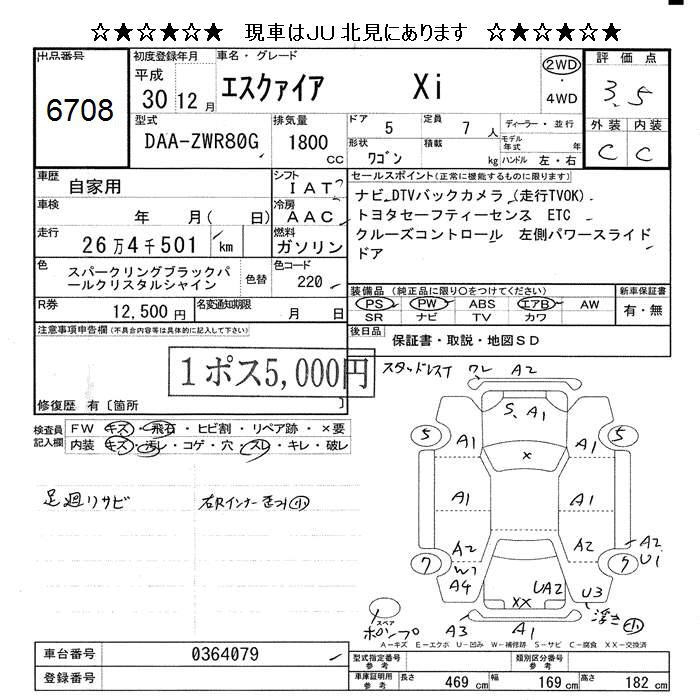 ☆★☆★☆★ 現車はJU北見にあります ☆★☆★☆★
出品番号
6708
初度登録年月
平成
30年 12月
車名・グレード
エスクァイア Xi
2WD
4WD
評価点
3.5
外装 内装
C C
型式
DAA-ZWR80G
排気量
1800
cc
ドア 5
定員 7 人
ディーラー・並行
形状 ワゴン
積載 kg
モデル年式 年
ハンドル 左・右
車歴
自家用
シフト
IAT
車検
年 月( 日)
冷房
AAC
走行
26万4千501 km
燃料
ガソリン
色
スパークリングブラックパールクリスタルシャイン
色替
色コード
220
R券
12,500円
名変通知期限
月 日
セールスポイント(正常に機能するものに限ります)
ナビ DTVバックカメラ (走行TVOK)
トヨタセーフティーセンス ETC
クルーズコントロール 左側パワースライド
ドア
装備品(純正品に限り○をつけてください)
PS PW ABS エアB AW
SR ナビ TV カワ
新車保証書
有・無
後日品
保証書・取説・地図SD
注意事項申告欄(不具合内容等は具体的に記入して下さい)
1ポス5,000円
修復歴 有〔箇所 〕
検査員記入欄
FW キズ・飛石・ヒビ割・リペア跡・×要
内装 キズ・汚レ・コゲ・穴・スレ・キレ・破レ
足廻りサビ
右Rインナーきづ小
スタッドレス ワレ A2
S、A1
5 A1 × A1 5
A1 A1
A2 A2 A2
7 W2 7 U1
A4 UA2 U3
XX
浮き 小
スペア
ポンプ
A3 A1
A-キズ E-エクボ U-凹み W-補修跡 S-サビ C-腐食 XX-交換済
車台番号
0364079
登録番号
型式指定番号
参考
類別区分番号
参考
車庫証明用
参考
長さ 469 cm
幅 169 cm
高さ 182 cm